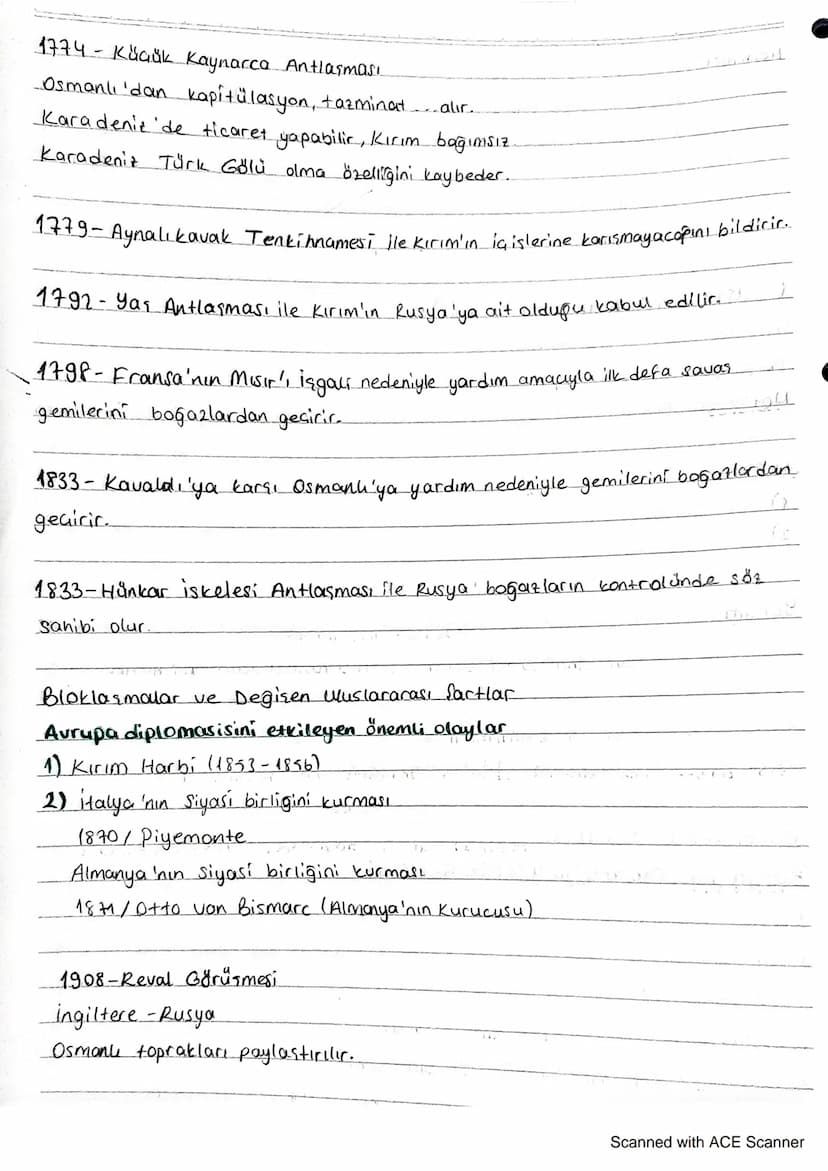 1774 - Küçük Kaynarca Antlaşması
Osmanlı'dan kapitülasyon, tazminat ... alır.
Karadeniz'de ticaret yapabilir, Kırım bağımsız
Karadeniz Türk Gölü olma özelliğini kaybeder.
1779 - Aynalıkavak Tenkihnamesi ile Kırım'ın iç işlerine karışmayacağını bildirir.
1792 - Yaş Antlaşması ile Kırım'ın Rusya'ya ait olduğu kabul edilir.
1798 - Fransa'nın Mısır'ı işgali nedeniyle yardım amacıyla ilk defa savaş
gemilerini boğazlardan geçirir.
1833 - Kavaldı'ya karşı Osmanlı'ya yardım nedeniyle gemilerini boğazlardan
geçirir.
1833 - Hünkar iskelesi Antlaşması ile Rusya boğazların kontrolünde söz
sahibi olur.
Bloklaşmalar ve Değişen Uluslararası Şartlar
Avrupa diplomasisini etkileyen önemli olaylar
1) Kırım Harbi (1853 - 1856)
2) İtalya'nın Siyasi birligini kurması
1870 / Piyemonte
Almanya'nın siyasi birliğini kurması
1871 / Otto von Bismarc (Almanya'nın Kurucusu)
1908 - Reval Görüşmesi
İngiltere - Rusya
Osmanlı toprakları paylaştırılır.
Scanned with ACE Scanner